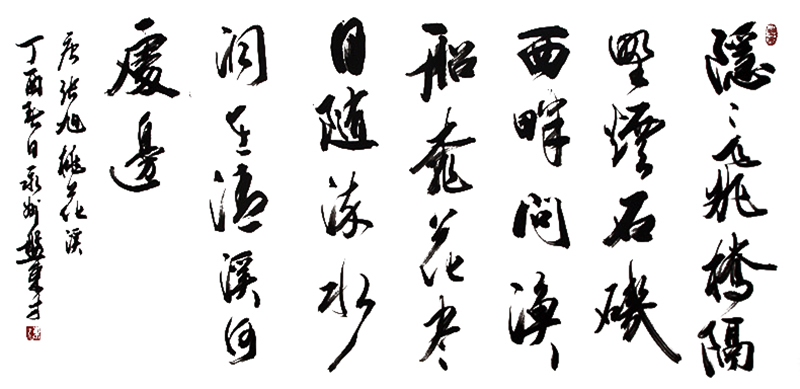 隱〻飛橋隔
野煙石磯
西畔问渔
船桃花尽
日随流水
洞在清溪何
處邊
唐张旭桃花溪
丁酉春日永州盤